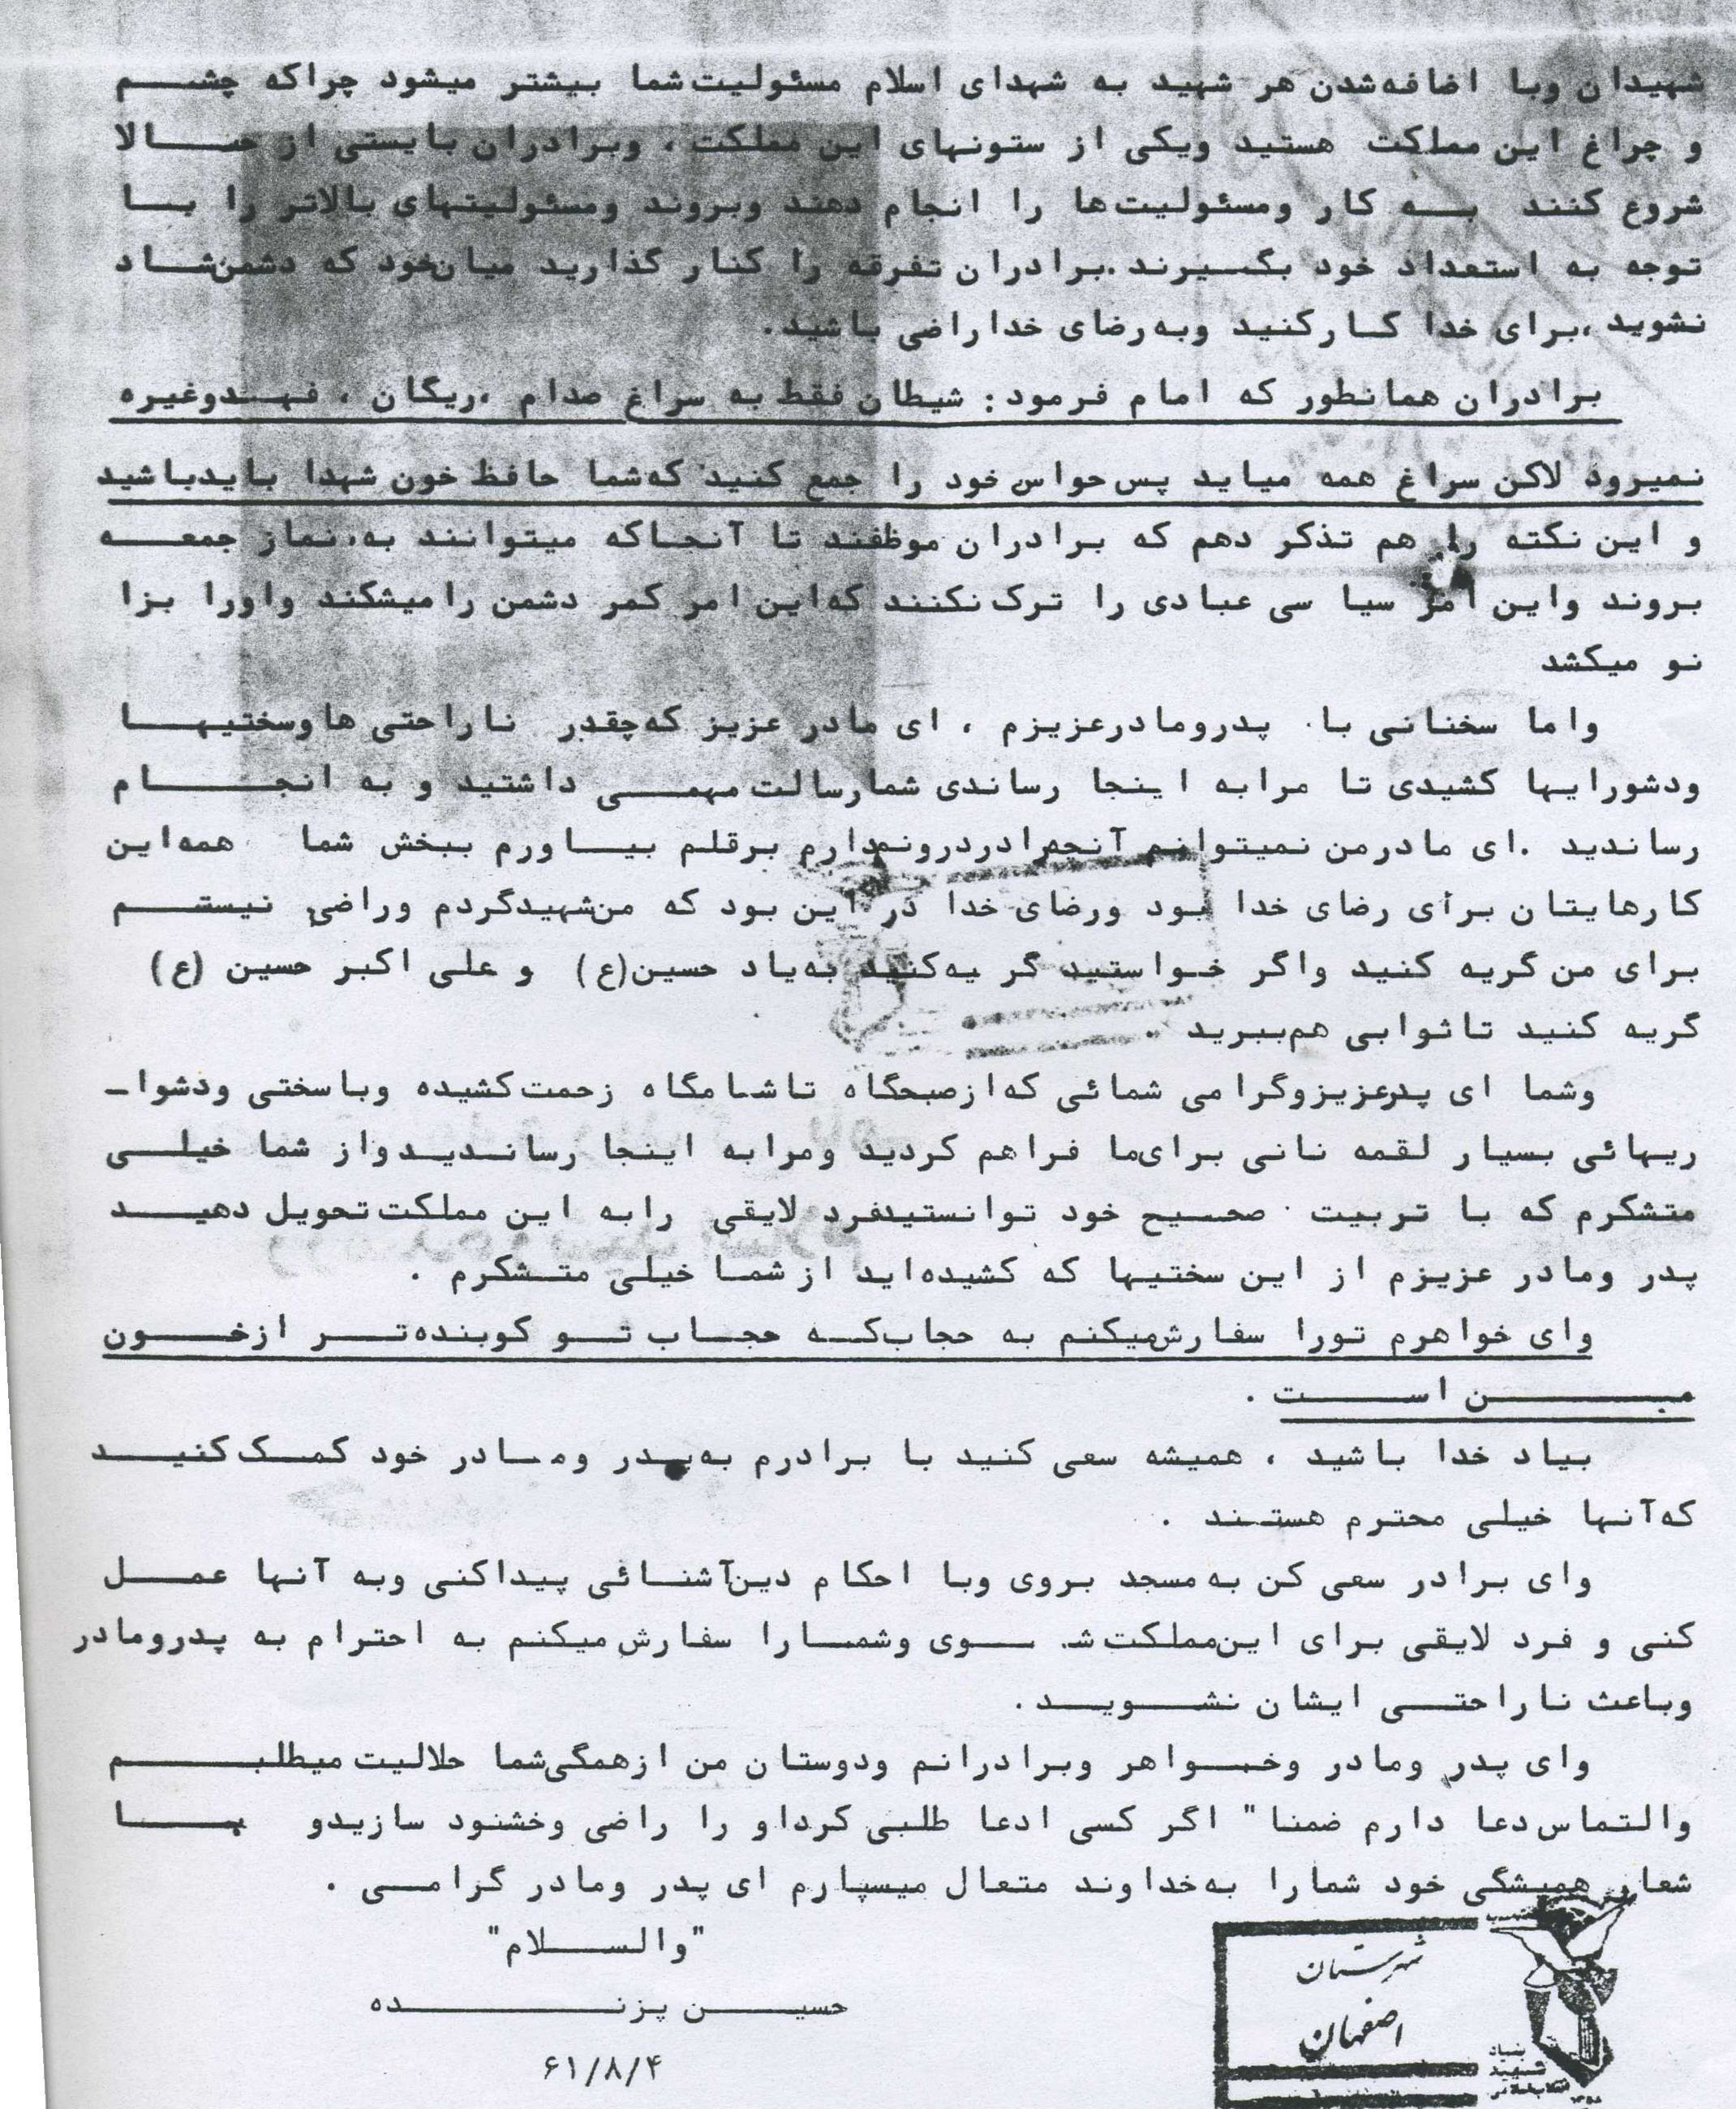 شهیدان وبا اضافه‌شدن هر شهید به شهدای اسلام مسئولیت شما بیشتر میشود چراکه چشم
و چراغ این مملکت هستید ویکی از ستونهای این مملکت ، وبرادران بایستی از حالا
شروع کنند به کار ومسئولیت‌ها را انجام دهند وبروند ومسئولیتهای بالاتر را با
توجه به استعداد خود بگیرند .برادران تفرقه را کنار گذارید میان‌خود که دشمن‌شاد
نشوید ،برای خدا کارکنید وبه‌رضای خدا راضی باشید.
برادران همانطور که امام فرمود: شیطان فقط به سراغ صدام ،ریگان ، فهدوغیره
نمیرود لاکن سراغ همه میاید پس حواس خود را جمع کنید که‌شما حافظ خون شهدا بایدباشید
و این نکته را هم تذکر دهم که برادران موظفند تا آنجاکه میتوانند به نماز جمعه
بروند واین امر سیا سی عبادی را ترک نکنند که‌این امر کمر دشمن را میشکند واورا بزا
نو میکشد
واما سخنانی با پدرومادرعزیزم ، ای مادر عزیز که‌چقدر ناراحتی هاوسختیها
ودشورایها کشیدی تا مرابه اینجا رساندی شمارسالت مهمی داشتید و به انجام
رساندید .ای مادرمن نمیتوانم آنچه‌رادردرونم‌دارم برقلم بیاورم ببخش شما همه‌این
کارهایتان برای رضای خدا بود ورضای خدا در این بود که من‌شهیدگردم وراضی نیستم
برای من گریه کنید واگر خواستید گر یه‌کنید به‌یاد حسین(ع) و علی اکبر حسین (ع)
گریه کنید تاثوابی هم‌ببرید .
وشما ای پدرعزیزوگرامی شمائی که‌ازصبحگاه تاشامگاه زحمت‌کشیده وباسختی ودشوا-
ریهائی بسیار لقمه نانی برای‌ما فراهم کردید ومرابه اینجا رساندیدواز شما خیلی
متشکرم که با تربیت صحیح خود توانستیدفرد لایقی رابه این مملکت تحویل دهید
پدر ومادر عزیزم از این سختیها که کشیده‌اید ازشما خیلی متشکرم .
وای خواهرم تورا سفارش‌میکنم به حجاب‌که حجاب تو کوبنده‌تر ازخون
من است .
بیاد خدا باشید ، همیشه سعی کنید با برادرم به‌پدر ومادر خود کمک کنید
که‌آنها خیلی محترم هستند .
وای برادر سعی کن به‌مسجد بروی وبا احکام دین‌آشنائی پیداکنی وبه آنها عمل
کنی و فرد لایقی برای این‌مملکت شوی وشمارا سفارش میکنم به احترام به پدرومادر
وباعث ناراحتی ایشان نشوید .
وای پدر ومادر وخواهر وبرادرانم ودوستان من ازهمگی‌شما حلالیت میطلبم
والتماس دعا دارم ضمنا" اگر کسی ادعا طلبی کرداو را راضی وخشنود سازیدو با
شعار همیشگی خود شمارا به‌خداوند متعال میسپارم ای پدر ومادر گرامی .
"والسلام"
حسین پزنده
۶۱/۸/۴
شهرستان
اصفهان
بنیاد
شهید
انقلاب اسلامی